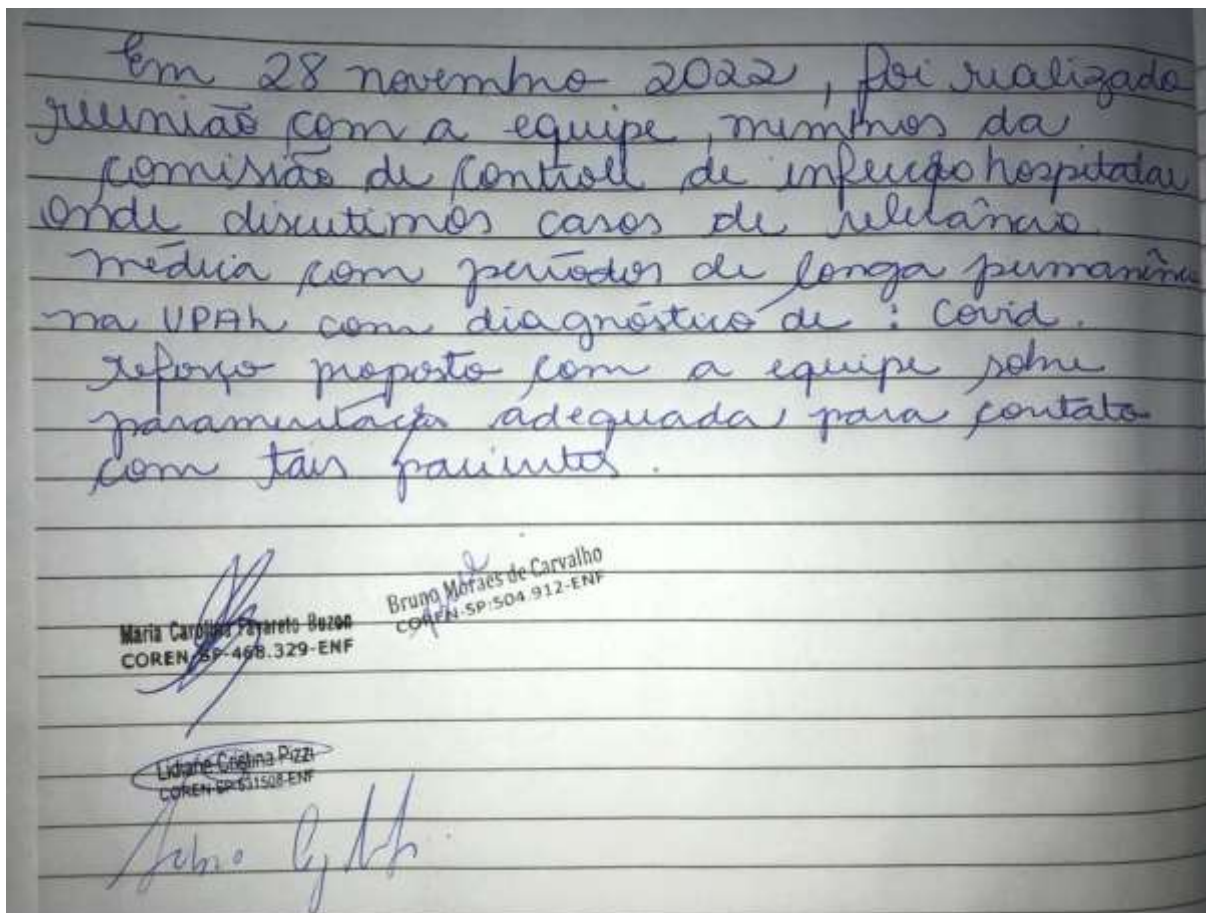 Em 28 novembro 2022, foi realizado
reunião com a equipe, membros da
comissão de controle de infecção hospitalar
onde discutimos casos de relevância
médica com períodos de longa permanência
na UPAh com diagnóstico de : Covid.
reforço proposto com a equipe sobre
paramentação adequada para contato
com tais pacientes.
Bruno Moraes de Carvalho
COREN-SP:504.912-ENF
Maria Carolina Favareto Buzon
COREN-SP-468.329-ENF
Lidiane Cristina Pizzi
COREN-SP:631508-ENF